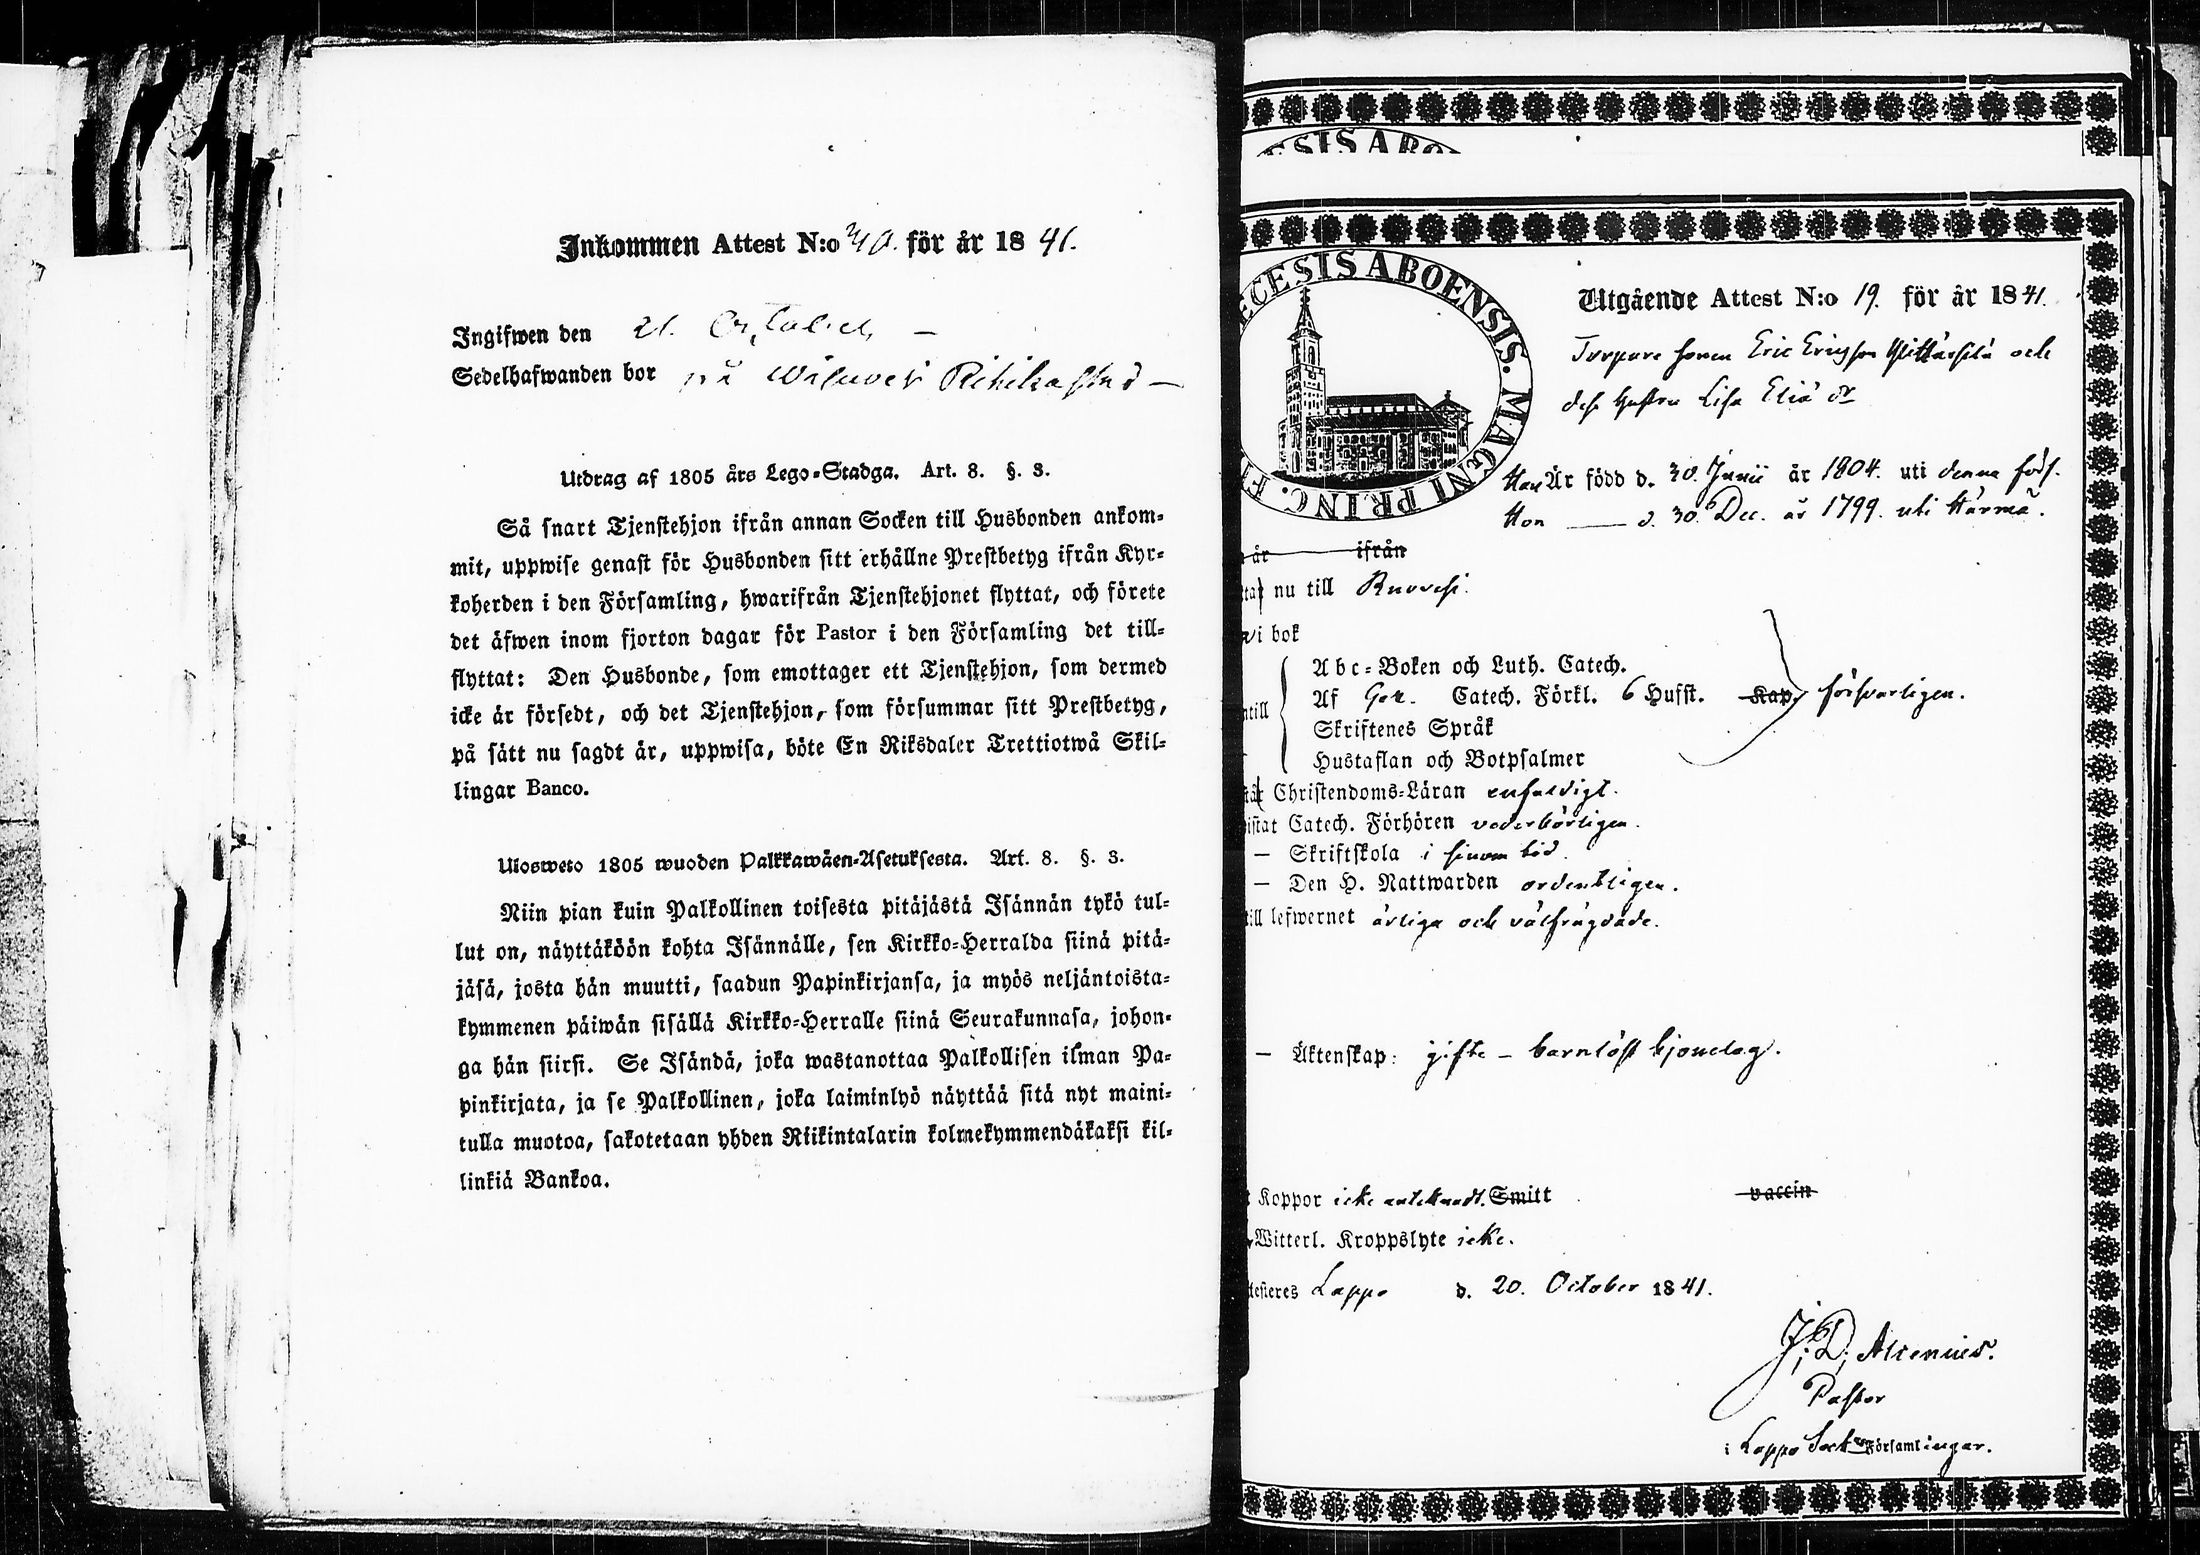 Inkommen Attest N:o 40. för år 1841.
Ingifwen den 21. October –
Sedelhafwanden bor på
Utdrag af 1805 års Lego-Stadga. Art. 8. §. 3.
Så snart Tjenstehjon ifrån annan Socken till Husbonden ankom-
mit, uppwise genast för Husbonden sitt erhållne Prestbetyg ifrån Kyr-
koherden i den Församling, hwarifrån Tjenstehjonet flyttat, och förete
det äfwen inom fjorton dagar för Pastor i den Församling det till-
flyttat: Den Husbonde, som emottager ett Tjenstehjon, som dermed
icke är försedt, och det Tjenstehjon, som försummar sitt Prestbetyg,
på sätt nu sagdt är, uppwisa, böte En Riksdaler Trettiotwå Skil-
lingar Banco.
Ulosweto 1805 wuoden Palkkawäen-Asetuksesta. Art. 8. §. 3.
Niin pian kuin Palkollinen toisesta pitäjästä Isännän tykö tul-
lut on, näyttäköön kohta Isännälle, sen Kirkko-Herralda siinä pitä-
jäsä, josta hän muutti, saadun Papinkirjansa, ja myös neljäntoista-
kymmenen päiwän sisällä Kirkko-Herralle siinä Seurakunnasa, johon-
ga hän siirsi. Se Isändä, joka wastanottaa Palkollisen ilman Pa-
pinkirjata, ja se Palkollinen, joka laiminlyö näyttää sitä nyt maini-
tulla muotoa, sakotetaan yhden Riikintalarin kolmekymmendäkaksi kil-
linkiä Bankoa.
ESIS ABO
ECESIS ABOENSIS. MAGNI PRINC. F
Utgående Attest N:o 19. för år 1841.
Torpare sonen Eric Ericsson och
dess hustru Lisa Eliæ dr
Han Är född d. 30. Junii år 1804. uti denna förs.
Hon — d. 30. Dec. år 1799. uti Härmä.
år ifrån
nu till Ruovesi.
i bok
Abc-Boken och Luth. Catech.
Af Catech. Förkl. 6 Hufst. Kap. försvarligen.
till
Skriftenes Språk
Hustaflan och Botpsalmer
Christendoms-Läran enfaldigt.
istat Catech. Förhören vederbörligen.
— Skriftskola i sinom tid.
— Den H. Nattwarden ordentligen.
till lefwernet ärliga och välfrägdade.
— Äktenskap: gifte – barnlöst hjonelag.
Koppor icke antecknadt. Smitt vaccin
Witterl. Kroppslyte icke.
testeres Lappo d. 20. October 1841.
J. D. Alcenius.
Pastor
i Lappo Sock:s Församlingar.